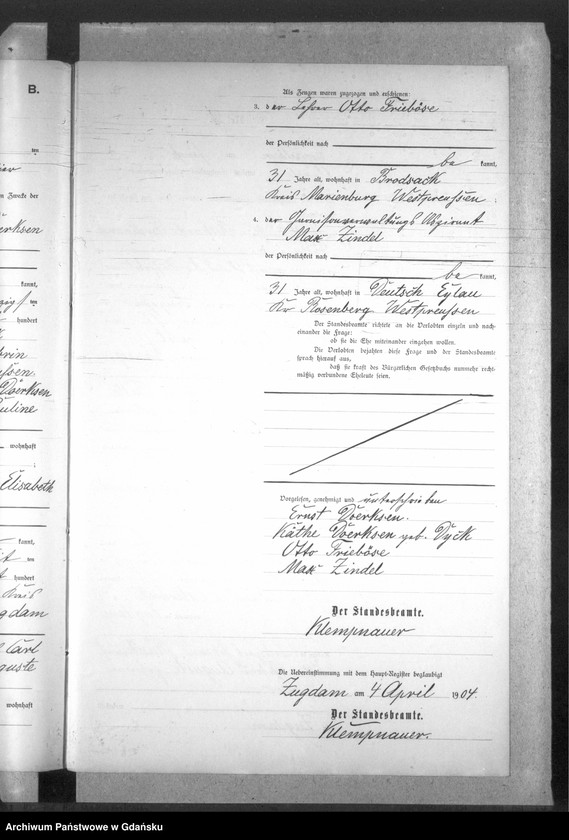 B.
Als Zeugen waren zugezogen und erschienen:
3. der Lehrer Otto Frieböse
der Persönlichkeit nach
be kannt,
31 Jahre alt, wohnhaft in Brodsack
Kreis Marienburg Westpreussen
4. der Garnisonverwaltungs Aspirant
Max Zindel
der Persönlichkeit nach
be kannt,
31 Jahre alt, wohnhaft in Deutsch Eylau
Kr Rosenberg Westpreussen
Der Standesbeamte richtete an die Verlobten einzeln und nach-
einander die Frage:
ob sie die Ehe miteinander eingehen wollen.
Die Verlobten bejahten diese Frage und der Standesbeamte
sprach hierauf aus,
daß sie kraft des Bürgerlichen Gesetzbuchs nunmehr recht-
mäßig verbundene Eheleute seien.
Vorgelesen, genehmigt und unterschrieben
Ernst Doerksen.
Käthe Doerksen geb. Dyck
Otto Frieböse
Max Zindel
Der Standesbeamte.
Klempnauer
Die Uebereinstimmung mit dem Haupt-Register beglaubigt
Zugdam am 4 April 1904.
Der Standesbeamte.
Klempnauer.
Archiwum Państwowe w Gdańsku